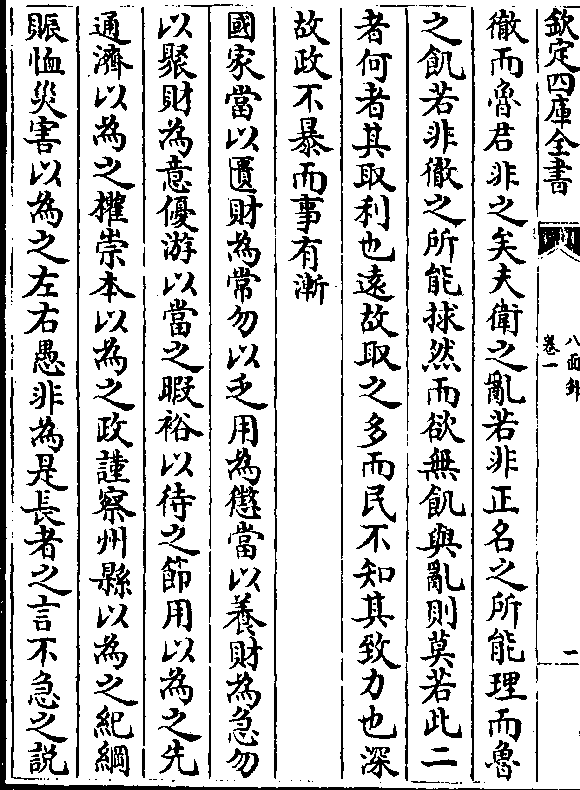 欽定四庫全書
八面鋒
卷一
二
徹而魯君非之矣夫衛之亂若非正名之所能理而魯
之飢若非徹之所能捄然而欲無飢與亂則莫若此二
者何者其取利也遠故取之多而民不知其致力也深
故政不暴而事有漸
國家當以匱財為常勿以乏用為懲當以養財為急勿
以聚財為意優游以當之暇裕以待之節用以為之先
通濟以為之權崇本以為之政謹察州縣以為之紀綱
賑恤災害以為之左右愚非為是長者之言不急之説